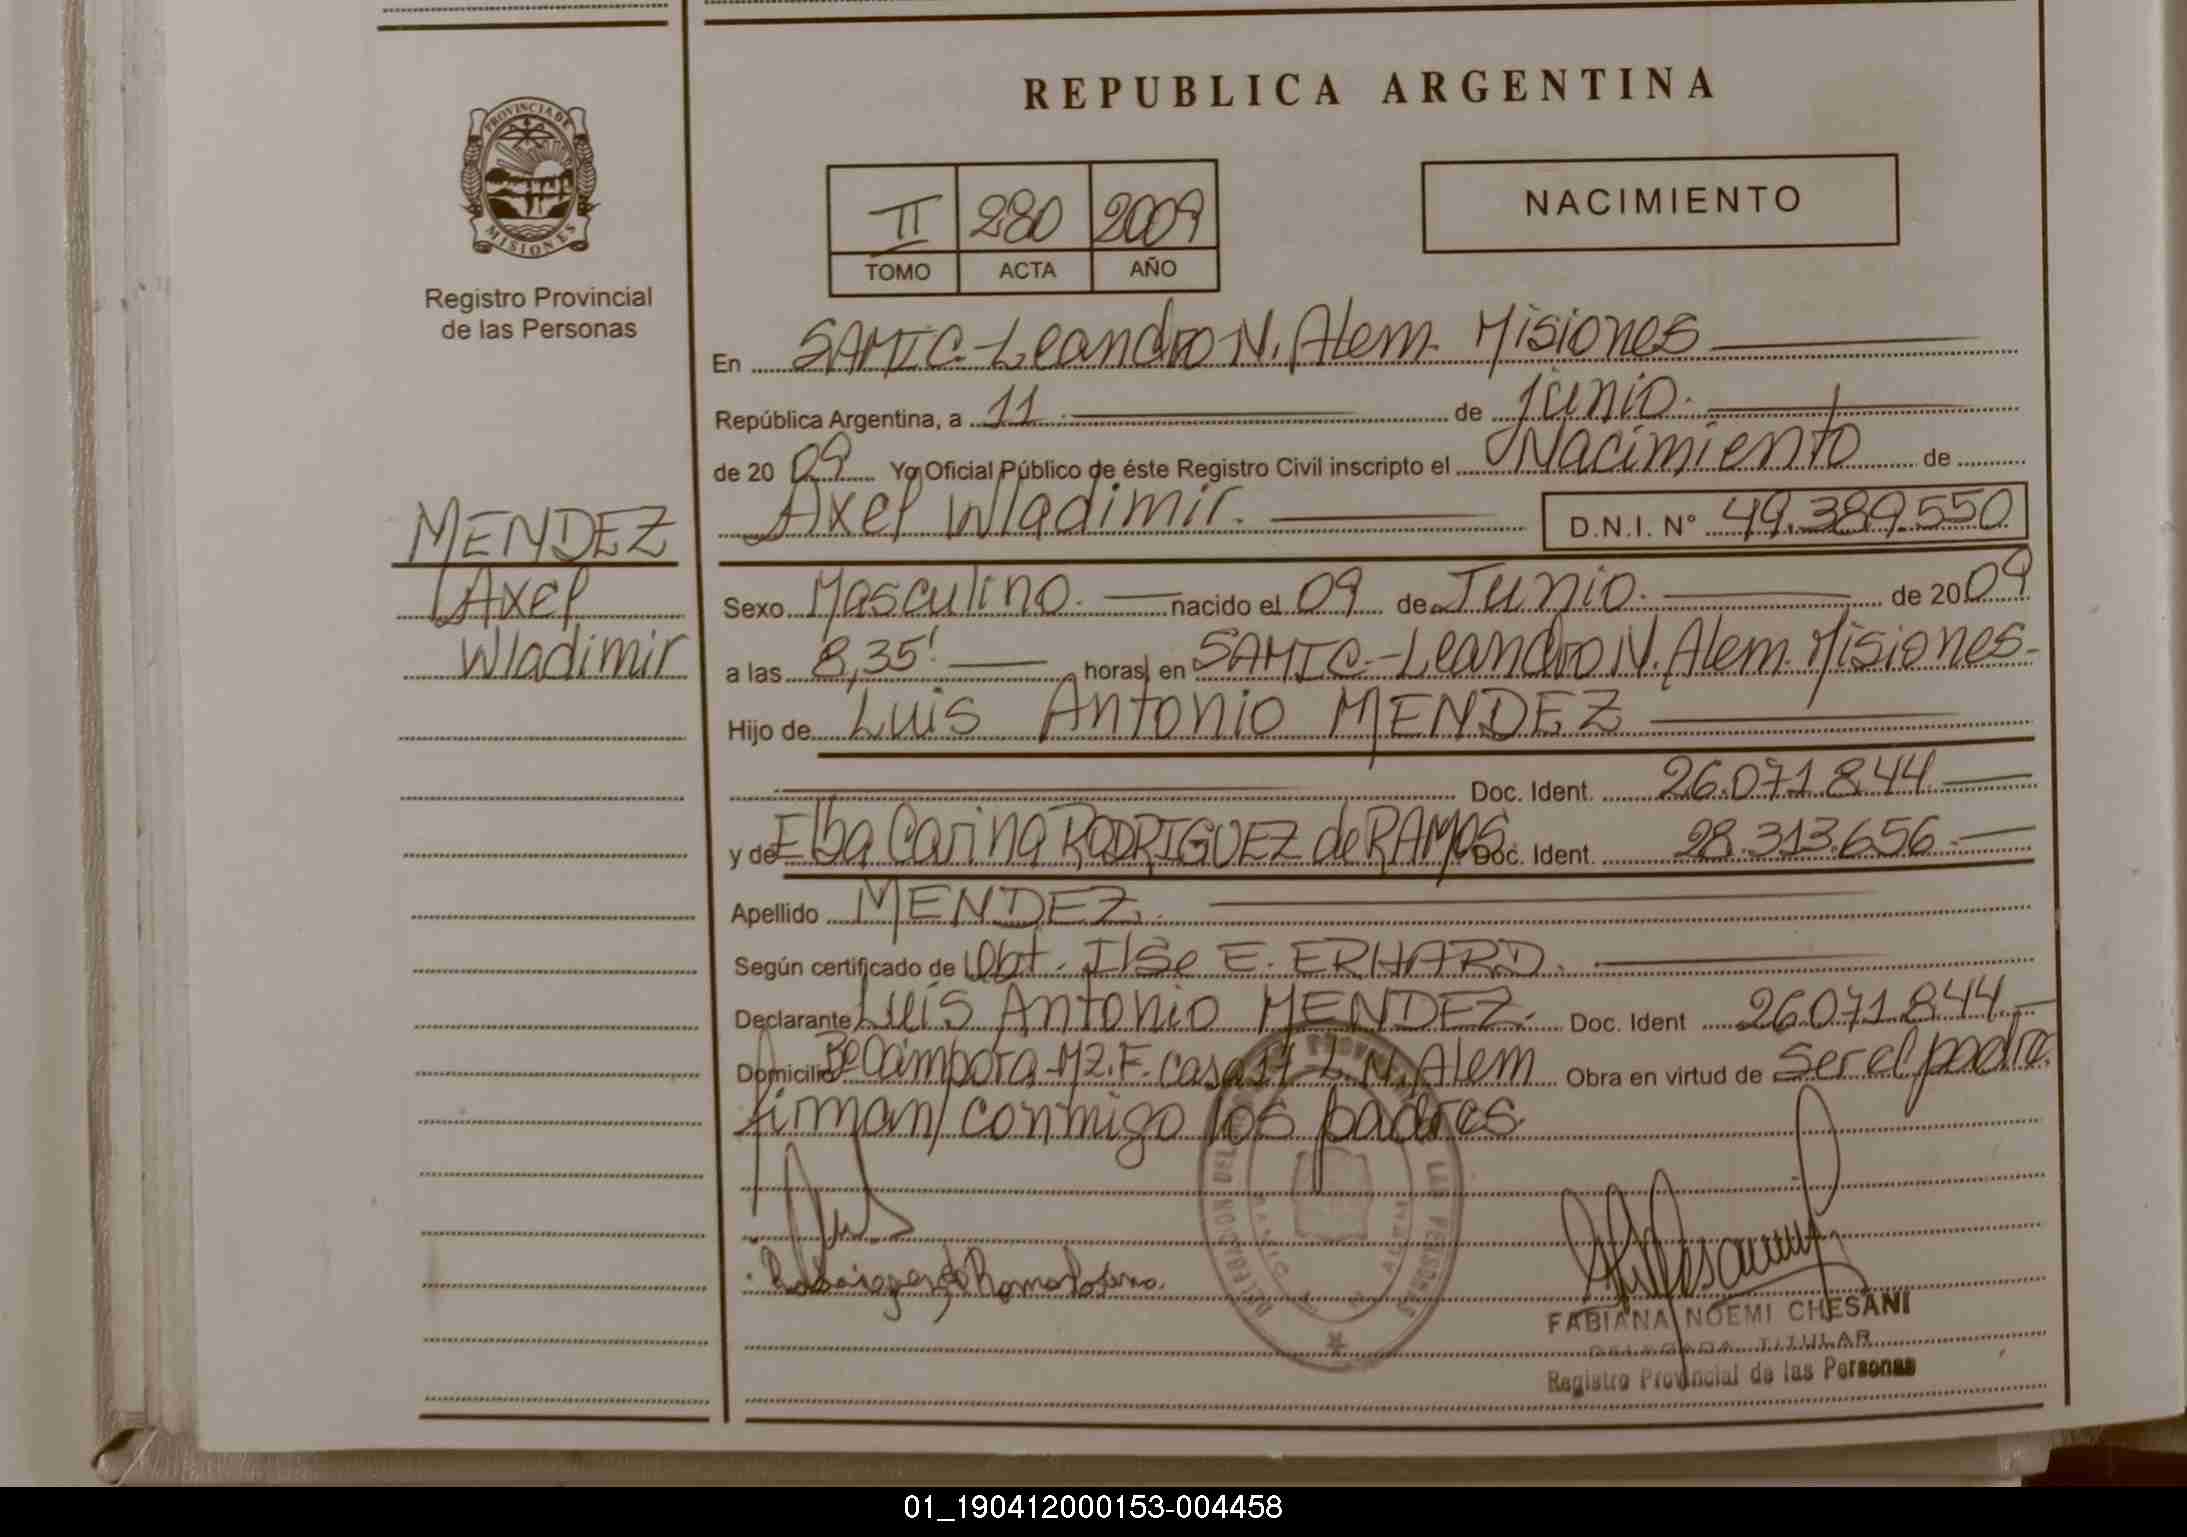 PROVINCIA DE
MISIONES
Registro Provincial
de las Personas
MENDEZ
Axel
Wladimir
REPUBLICA ARGENTINA
II 280 2009
TOMO ACTA AÑO
NACIMIENTO
En SAMIC-Leandro N. Alem. Misiones
República Argentina, a 11 de Junio.
de 2009 Yo Oficial Público de éste Registro Civil inscripto el Nacimiento de
Axel Wladimir. D.N.I. N° 49.389.550
Sexo Masculino. nacido el 09 de Junio. de 2009
a las 8,35' horas en SAMIC-Leandro N. Alem. Misiones-
Hijo de Luis Antonio MENDEZ
Doc. Ident. 26.071.844
y de Elba Carina RODRIGUEZ de RAMOS Doc. Ident. 28.313.656
Apellido MENDEZ.
Según certificado de Obt. Ilse E. ERHARD.
Declarante Luis Antonio MENDEZ. Doc. Ident 26.071.844
Domicilio Bº Cámpora-MZ.F. casa L.N. Alem Obra en virtud de ser el padre.
firman conmigo los padres.
FABIANA NOEMI CHESANI
DELEGADA TITULAR
Registro Provincial de las Personas
01_190412000153-004458